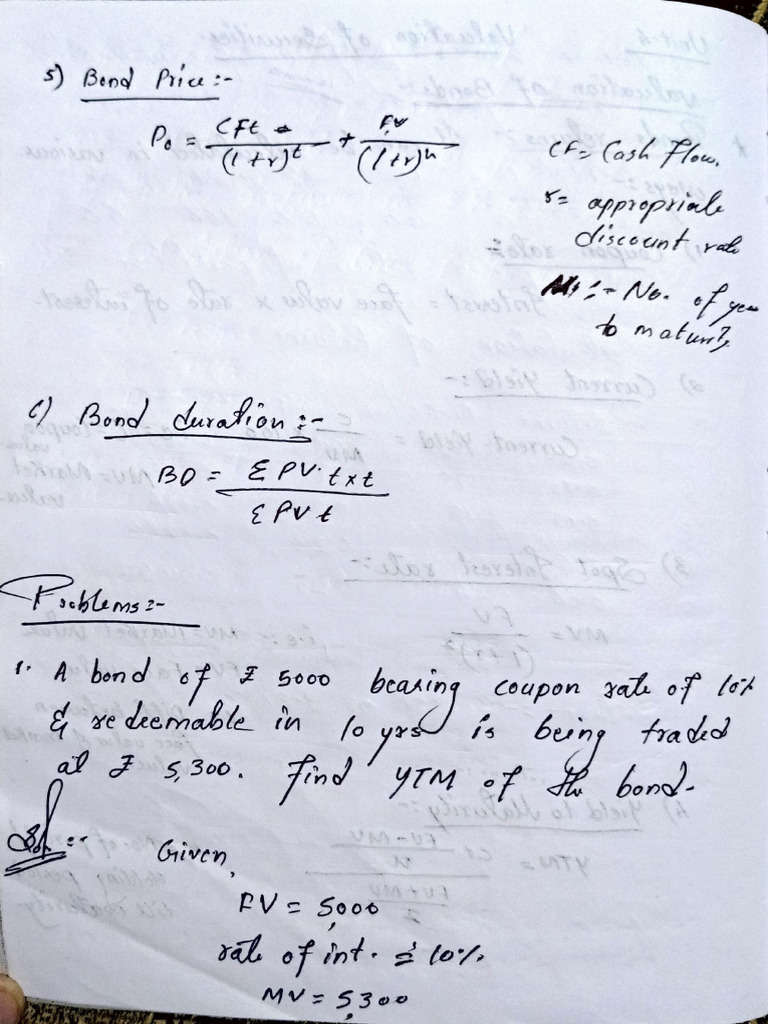 5) Bond Price :-
P₀ = CFt / (1+r)^t + FV / (1+r)^n
CF = Cash Flow.
r = appropriate
discount rate
:- No. of year
to maturity
6) Bond duration :-
BD = Σ PV. t x t / Σ PV t
Problems :-
1. A bond of ₹ 5000 bearing coupon rate of 10%
& redeemable in 10 yrs is being traded
at ₹ 5,300. Find YTM of the bond.
Sol :- Given,
FV = 5,000
rate of int. = 10%
MV = 5,300